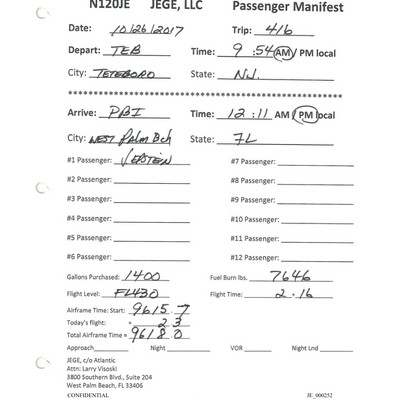 N120JE JEGE, LLC Passenger Manifest
Date: 10/26/2017 Trip: 416
Depart: TEB Time: 9:54 AM / PM local
City: TETEBORO State: NJ.
Arrive: PBI Time: 12:11 AM / PM local
City: WEST Palm Bch State: FL
#1 Passenger: #7 Passenger:
#2 Passenger: #8 Passenger:
#3 Passenger: #9 Passenger:
#4 Passenger: #10 Passenger:
#5 Passenger: #11 Passenger:
#6 Passenger: #12 Passenger:
Gallons Purchased: 1400 Fuel Burn lbs. 7646
Flight Level: FL430 Flight Time: 2.16
Airframe Time: Start: 9615.7
Today's flight: + 2.3
Total Airframe Time = 9618.0
Approach Night VOR Night Lnd
JEGE, c/o Atlantic
Attn: Larry Visoski
3800 Southern Blvd., Suite 204
West Palm Beach, FL 33406
CONFIDENTIAL JE_000252